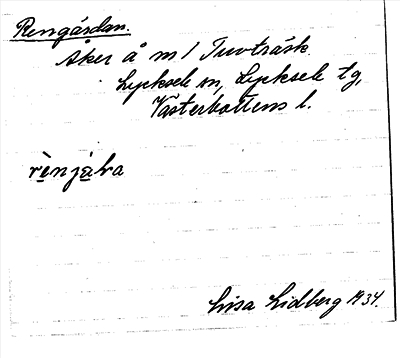 Rengårdan.
Åker å m/ Tuvträsk
Lycksele sn, Lycksele tg,
Västerbottens l.
Lisa Lidberg 1934.